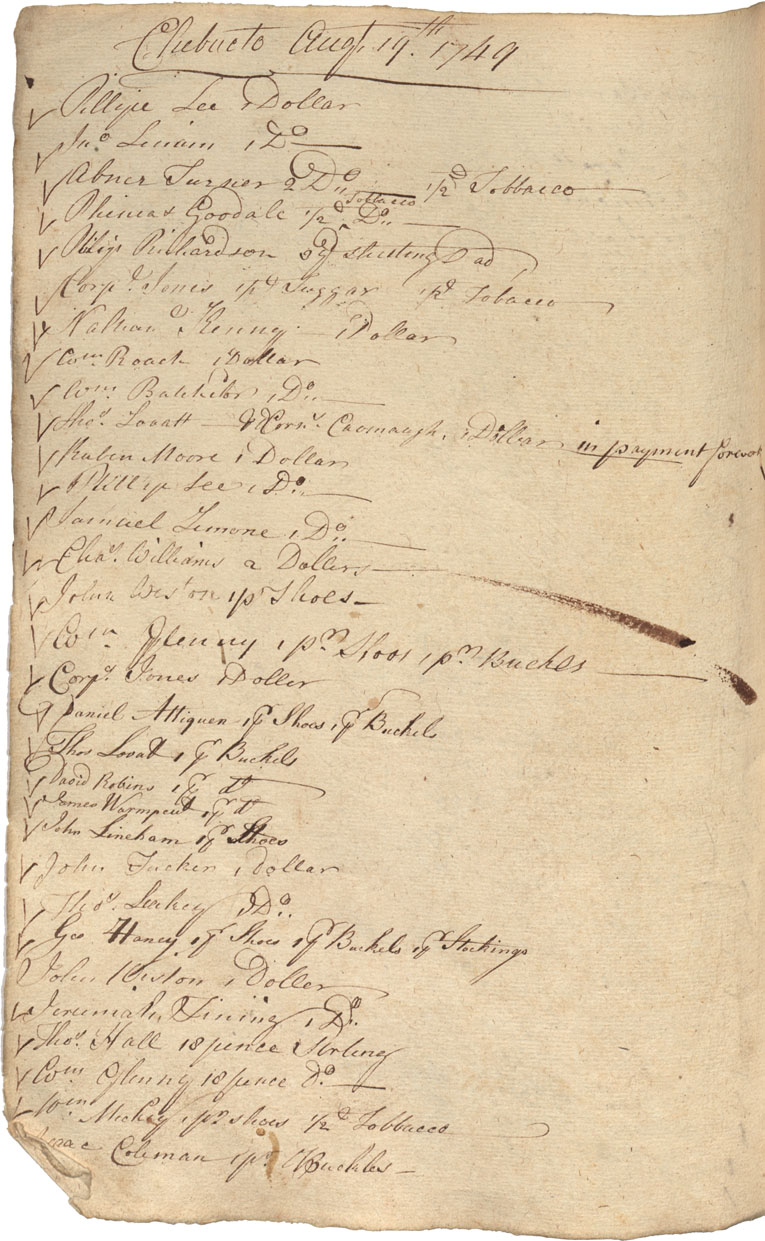 Chebucto Augt. 19th. 1749
Phillipe Lee 1 Dollar
Jno. Liniam 1 Do
Abner Turner 2 Do.. 1/2d Tobbacco
Phineas Goodale 1/2d Tobbacco Do..
Richardson
Corpl. Jones 1pd Suggar 1/2d Tobacco
Nathan Kenny 1 Dollar
Wm. Roach 1 Dollar
Wm. Batchelor 1 Do..
Thos. Lovatt & Corns. Cavanaugh 1 Dollar in payment for work
Ruben Moore 1 Dollar
Phillip Lee 1 Do..
Samuel Limone 1 Do..
Chas. Williams 2 Dollers
John Weston 1 pr Shoes
Wm Glenny 1 pr. Shoos 1 pr. Buckls
Corpl. Jones 1 Doller
Daniel Attiquen 1 pr Shoes 1 pr Buckels
Thos Lovatt 1 pr Buckels
David Robins 1 pr do
James Warmpeut 1 pr do
John Lineham 1 pr Shoes
John Tucker 1 Dollar
Thos. Leekey 1 Do..
Geo Haney 1 pr Shoes 1 pr Buckels 1 pr Stockings
John Weston 1 Doller
Jeremiah Lining 1 Do..
Thos. Hall 18 pence Sterling
Wm Glenny 18 pence Do.
Wm Mickey 1 pr shoes 1/2d Tobbacco
Isaac Coleman 1 pr Buckles